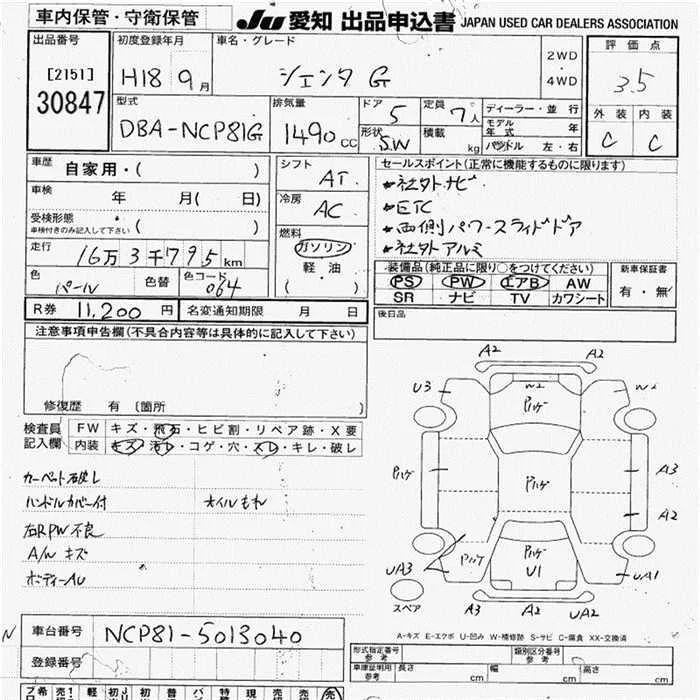 車内保管・守衛保管
JU 愛知 出品申込書 JAPAN USED CAR DEALERS ASSOCIATION
出品番号
[2151]
30847
初度登録年月
H18 9月
車名・グレード
シエンタ G
2WD
・
4WD
評価点
3.5
外装 内装
C C
型式
DBA-NCP81G
排気量
1490 CC
ドア
5
形状
SW
定員
7人
積載
kg
ディーラー・並行
モデル年式 年
ハンドル 左・右
車歴 自家用・( )
車検 年 月( 日)
受検形態
車検付きのみ記入して下さい ( )
走行 16万3千795km
色 パール 色替 色コード 064
シフト
AT
冷房
AC
燃料
ガソリン
軽・油
( )
セールスポイント(正常に機能するものに限ります)
社外ナビ
ETC
両側パワースライドドア
社外アルミ
装備品(純正品に限り○をつけてください)
PS PW エアB AW
SR ナビ TV カワシート
新車保証書
有・無
R券 11,200円 名変通知期限 月 日
後日品
注意事項申告欄(不具合内容等は具体的に記入して下さい)
修復歴 有 〔箇所 〕
検査員記入欄
FW キズ・飛石・ヒビ割・リペア跡・X要
内装 キズ・汚レ・コゲ・穴・スレ・キレ・破レ
カーペット破レ
ハンドルカバー付 オイルもれ
右RPW不良
A/W キズ
ボディーAU
A2 A2
U3 W2 W2
パハゲ
パハゲ パハゲ A3
A2
パハゲ パハゲ
UA3 U1 UA1
スペア A3 A2 UA2
A-キズ E-エクボ U-凹み W-補修跡 S-サビ C-腐食 XX-交換済
車台番号 NCP81-5013040
登録番号
形式指定番号
参考
類別区分番号
参考
車庫証明用
参考
長さ cm 幅 cm 高さ cm